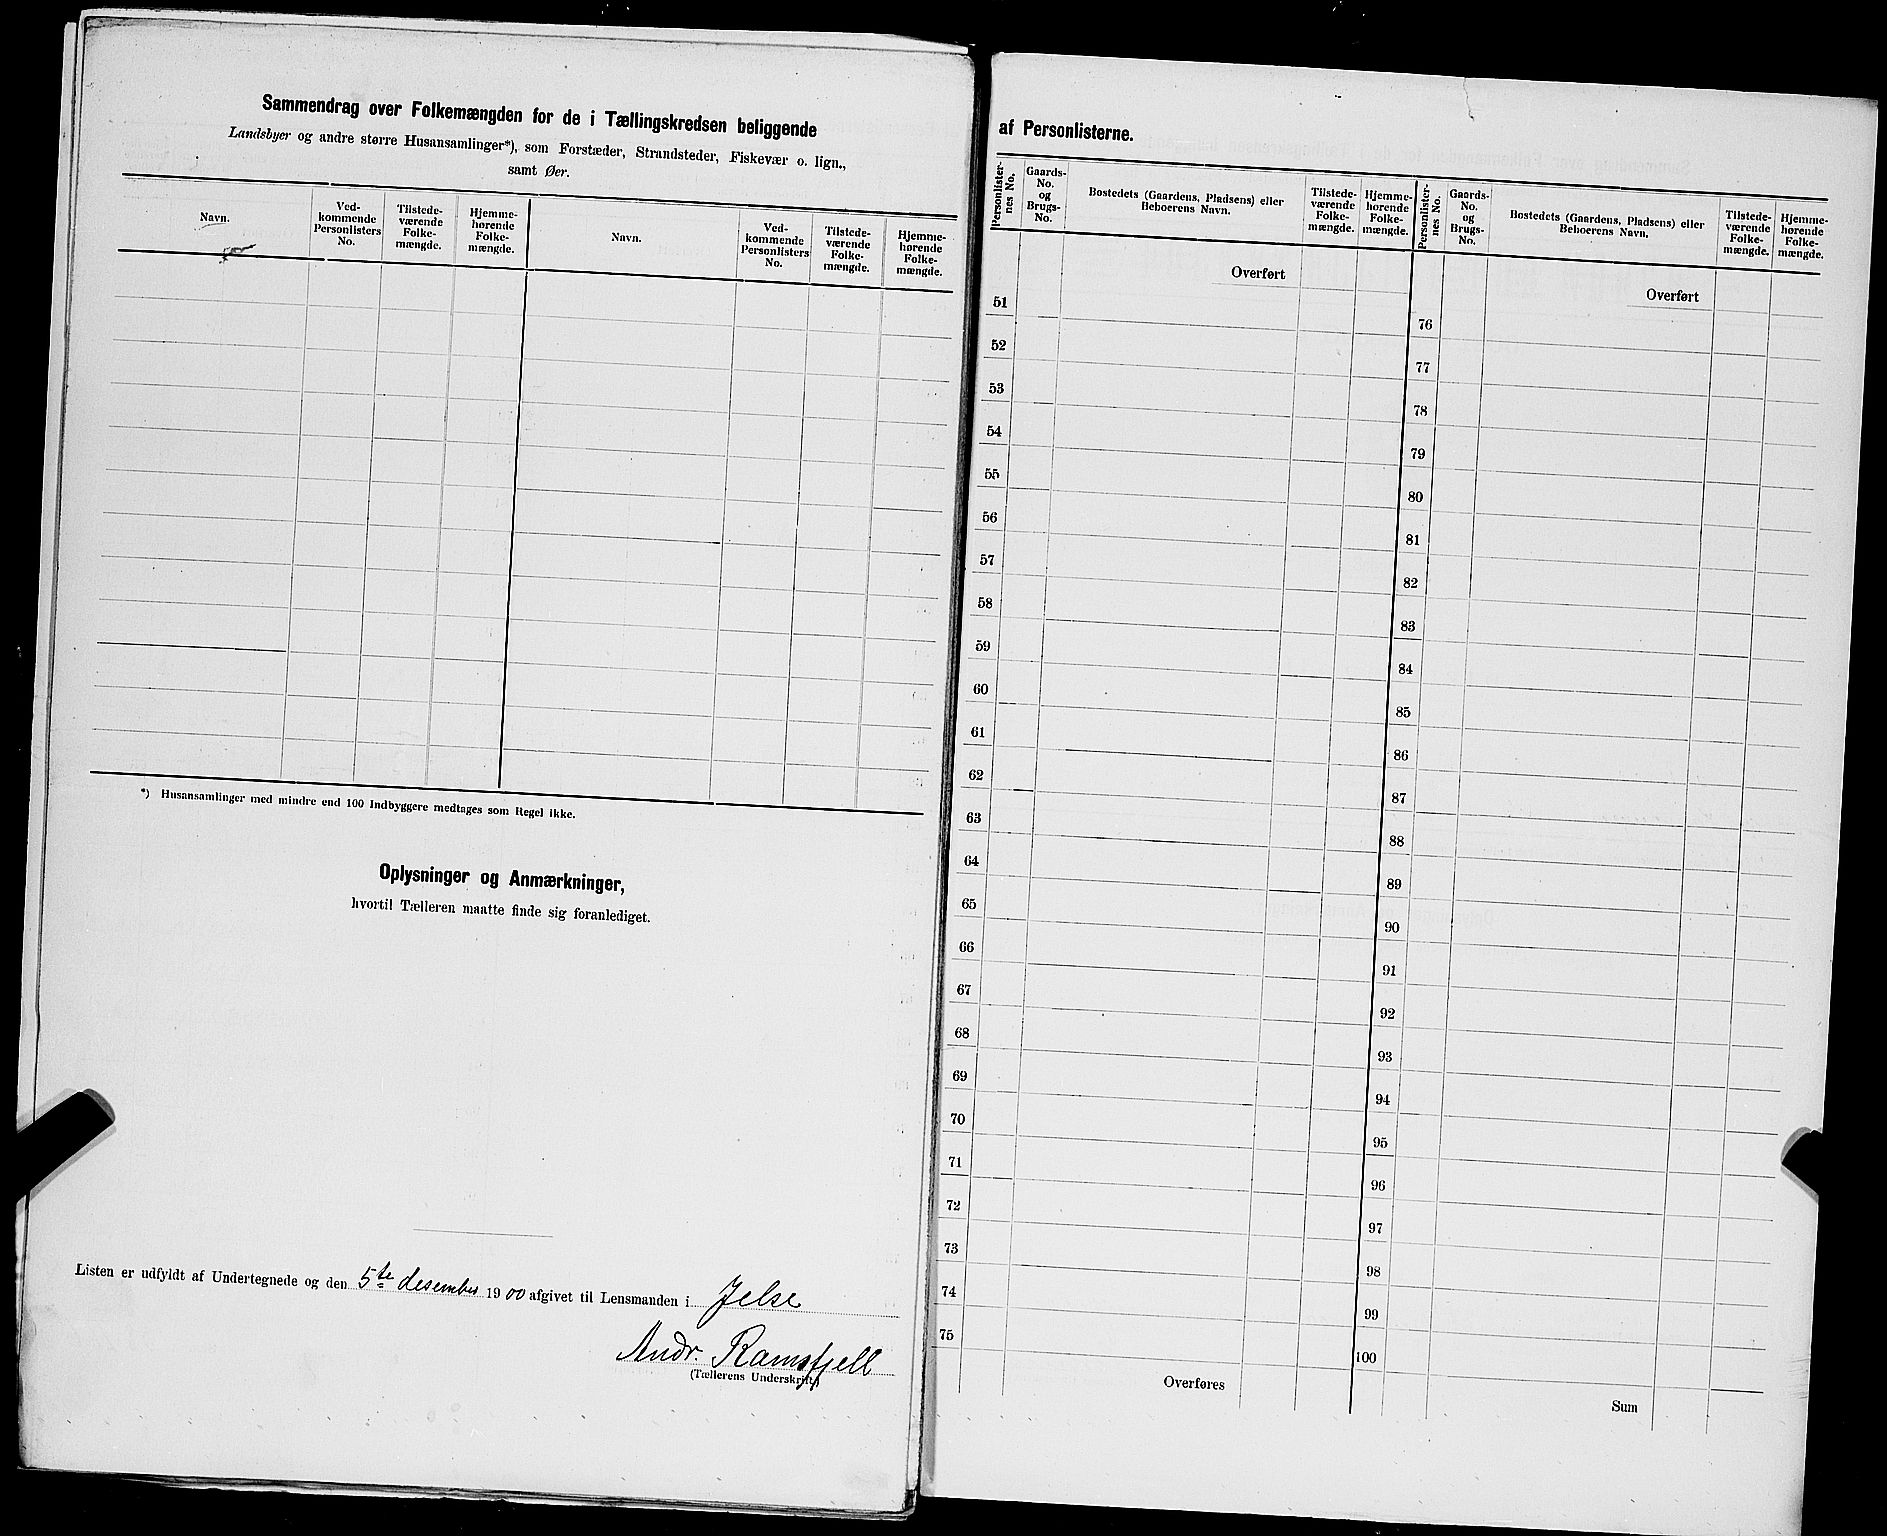 Sammendrag over Folkemængden for de i Tællingskredsen beliggende
Landsbyer og andre større Husansamlinger*), som Forstæder, Strandsteder, Fiskevær o. lign.,
samt Øer.
Navn.
Ved-
kommende
Personlisters
No.
Tilstede-
værende
Folke-
mængde.
Hjemme-
hørende
Folke-
mængde.
Navn.
Ved-
kommende
Personlisters
No.
Tilstede-
værende
Folke-
mængde.
Hjemme-
hørende
Folke-
mængde.
*) Husansamlinger med mindre end 100 Indbyggere medtages som Regel ikke.
Oplysninger og Anmærkninger,
hvortil Tælleren maatte finde sig foranlediget.
Listen er udfyldt af Undertegnede og den 5te desember 1900 afgivet til Lensmanden i Jelse
Andr. Ramsfjell
(Tællerens Underskrift.)
af Personlisterne.
Personlister-
nes No.
Gaards-
No.
og
Brugs-
No.
Bostedets (Gaardens, Pladsens) eller
Beboerens Navn.
Tilstede-
værende
Folke-
mængde.
Hjemme-
hørende
Folke-
mængde.
Personlister-
nes No.
Gaards-
No.
og
Brugs-
No.
Bostedets (Gaardens, Pladsens) eller
Beboerens Navn.
Tilstede-
værende
Folke-
mængde.
Hjemme-
hørende
Folke-
mængde.
Overført
51
52
53
54
55
56
57
58
59
60
61
62
63
64
65
66
67
68
69
70
71
72
73
74
75
Overføres
Overført
76
77
78
79
80
81
82
83
84
85
86
87
88
89
90
91
92
93
94
95
96
97
98
99
100
Sum